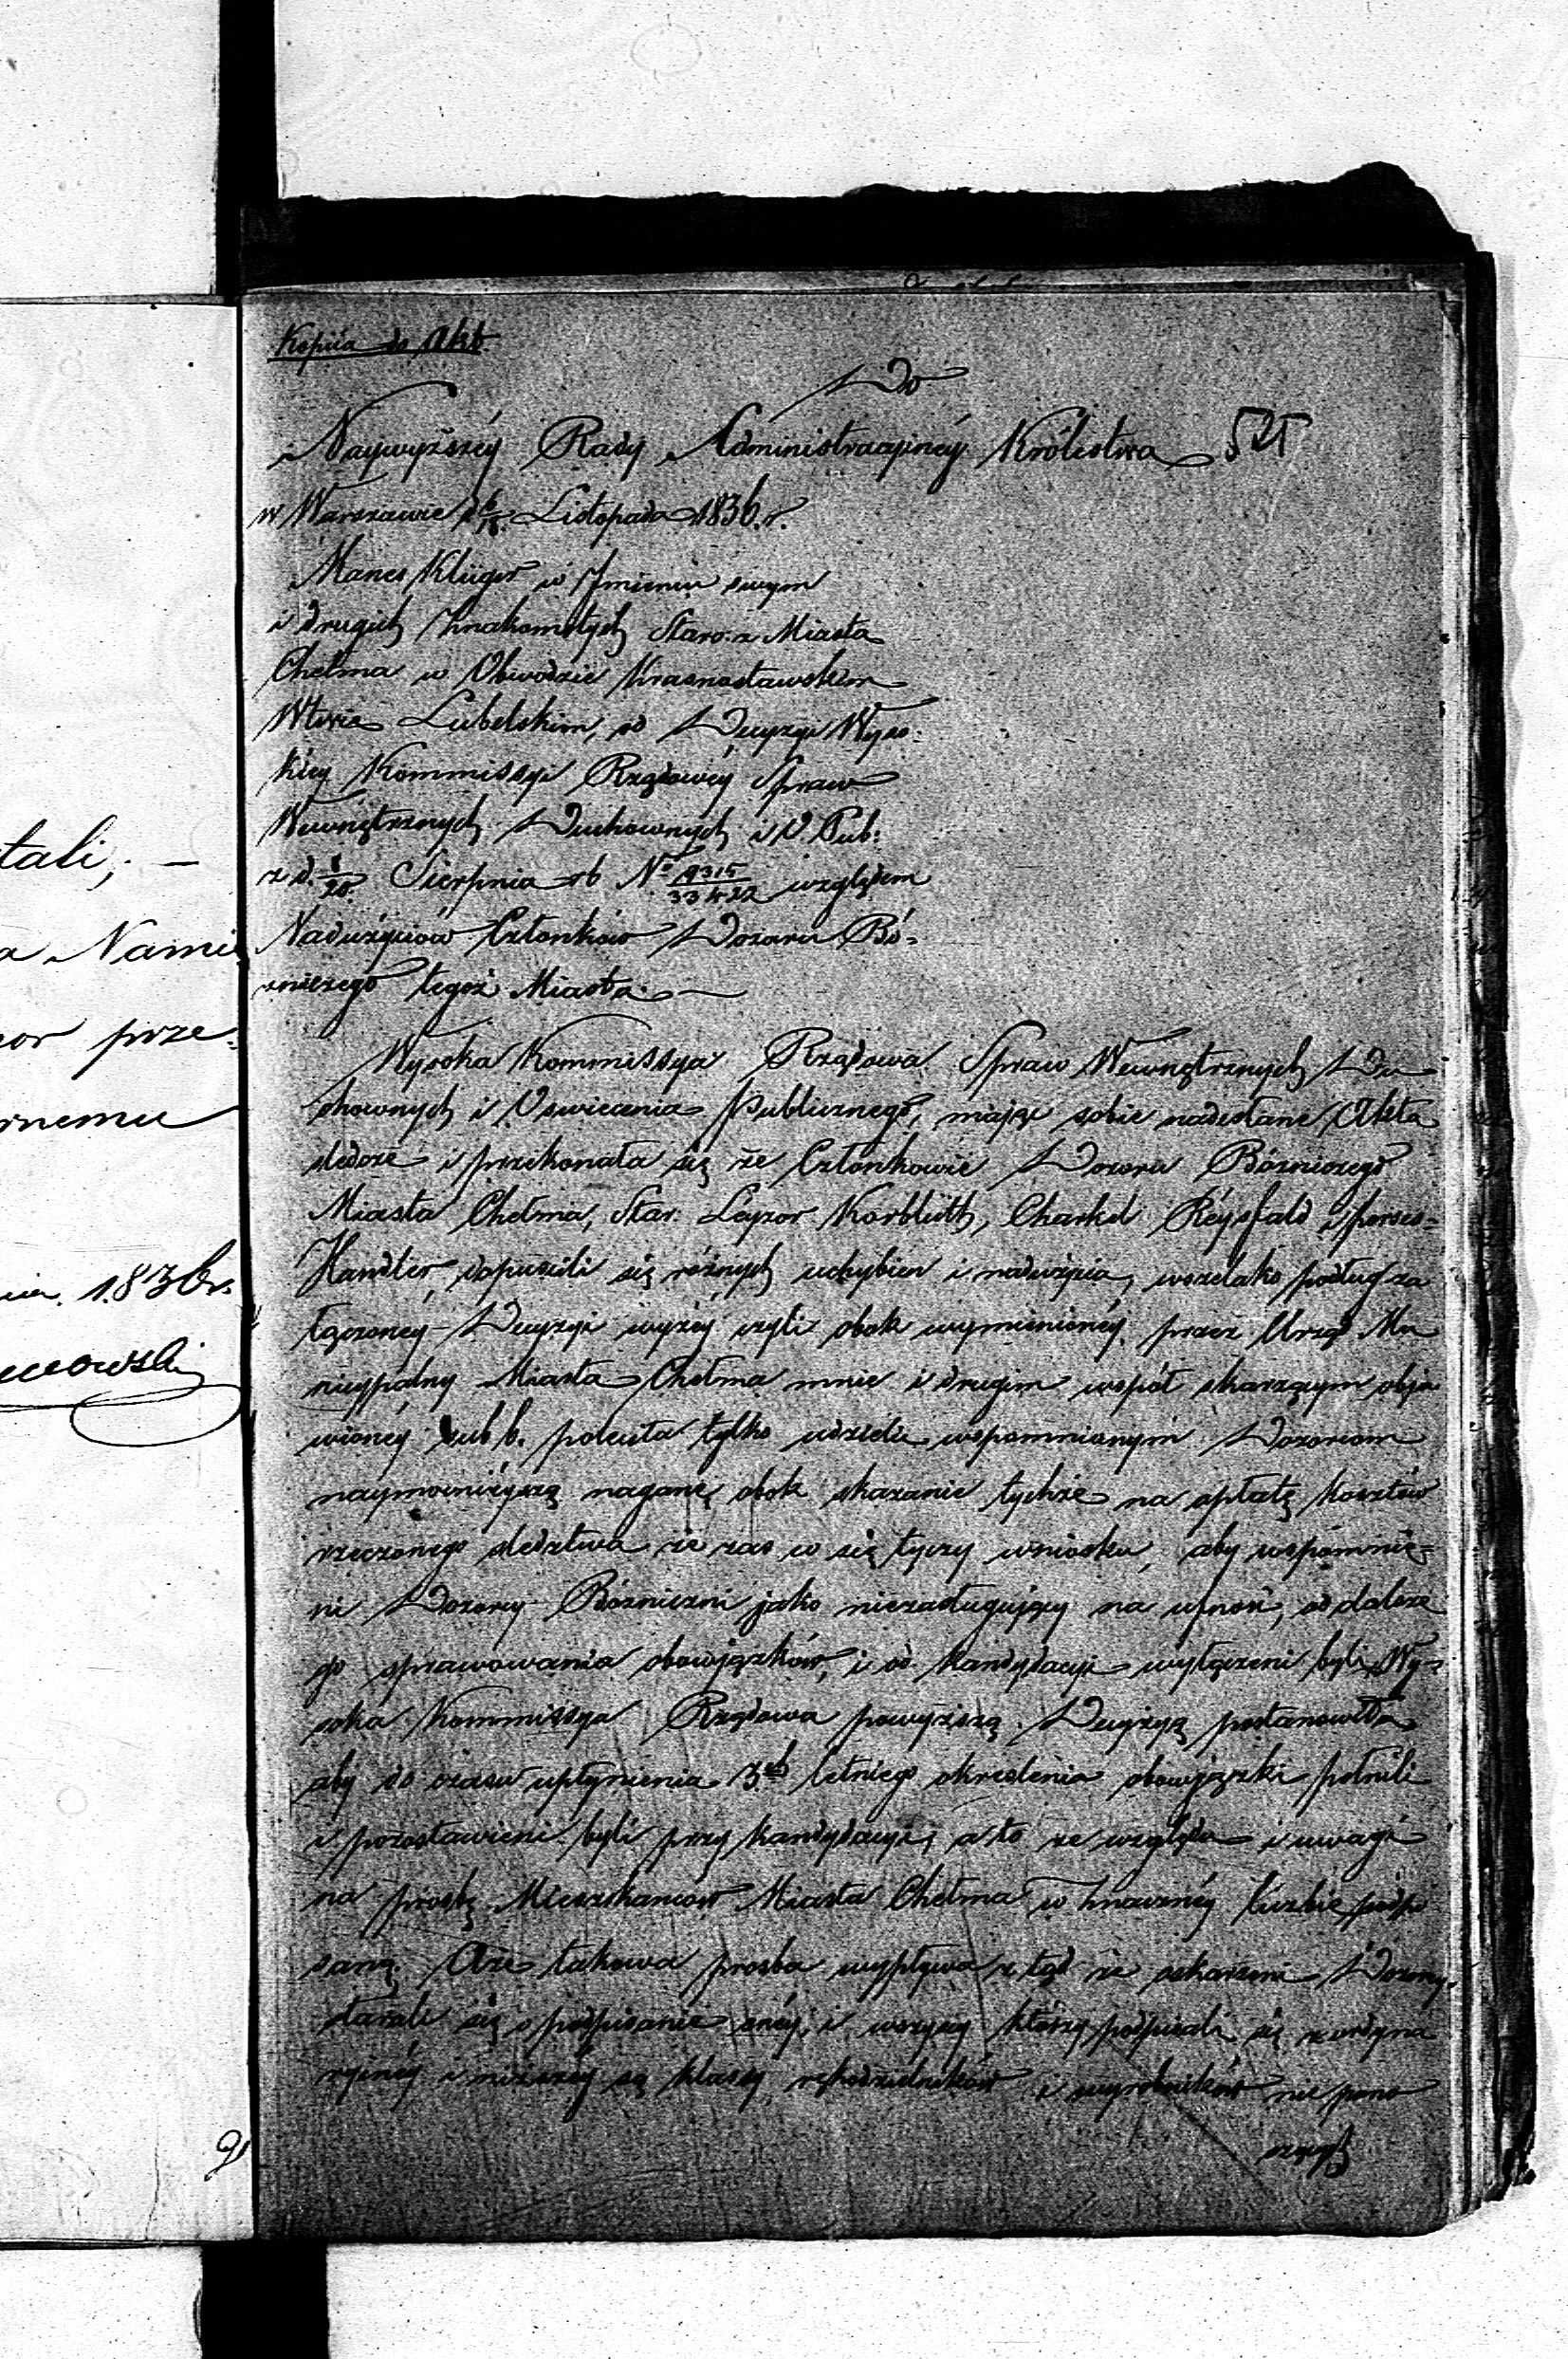 Kopiia do Akt
Do
Naywyższéy Rady Administracyinéy Królestwa 525
w Warszawie d 6/18 Listopada 1836. r.
Manes Klüger w Jmieniu swym
i drugich Znakomitych Staro: z Miasta
Chełma w Obwodzie Krasnostawskim
Wtwie Lubelskim, od Decyzyi Wyso:
kiey Kommissyi Rządowéy Spraw
Wewnętrznych Duchownych i O. Pub:
z d. 20 Sierpnia rb No 9315/33422 względem
Nadużyciów Członków Dozoru Bó=
zniczego tegoż Miasta. —
Wysoka Kommissya Rządowa Spraw Wewnętrznych Du
chownych i Oswiecenia Publicznego, mając sobie nadesłane Akta
sledcze i przekonała się że Członkowie Dozoru Bózniczego
Miasta Chełma, Star. Leyzor Korblütt, Charkel Réysfald i
Handler, dopuscili się różnych uchybien i nadużycia, wszelako podług za
łączonéy Decyzyi wyżéy czyli obok wymienionéy przez Urząd Mu
nicypalny Miasta Chełma mnie i drugim współ skarzącym obja
wionéy sub b. poleciła tylko udzielic wspomnionym Dozorcom
naymocnieyszą naganę, obok skazanie tychże na opłatę kosztów
rzeczonego sledztwa że zas co się tyczy wniosku, aby wspomnie=
ni Dozorcy Bózniczni jako niezasługujący na ufnosć, od dalsze
go sprawowania obowjązków, i od kandydacyi wyłączeni byli, Wy=
soka Kommissya Rządowa powyższą Decyzyą postanowiła
aby do czasu upłynienia 3ch letniego okreslenia obowjązki pełnili
i pozostawieni byli przy kandydacyi, a to ze względu i uwagi
na prosbę Mieszkanców Miasta Chełma w znacznéy liczbie podpi
saną. Oże takowa prosba wypływa z tąd że oskarzeni Dozorcy
starali się o podpisanie onéy, i wszyscy którzy podpisali się z ordyna
ryinéy i niższéy są klassy, rękodzielników i wyrobników nie pono
szących
tali, —
a Namie
or prze:
rnemu
1836 r.